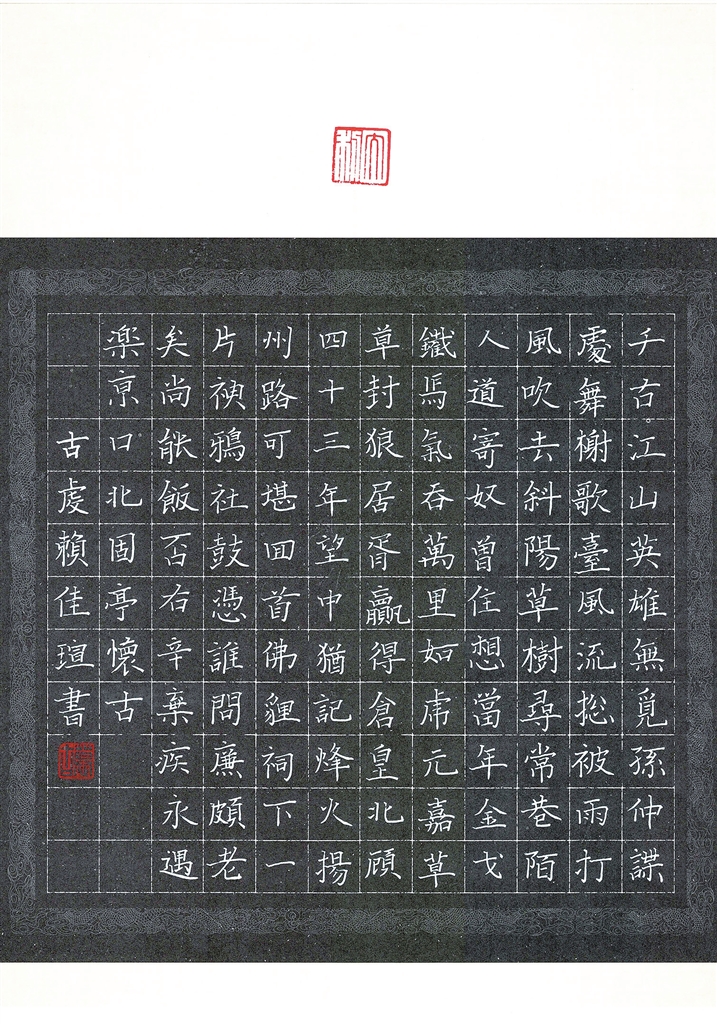 千古江山英雄無覓孫仲謀
處舞榭歌臺風流総被雨打
風吹去斜陽草樹尋常巷陌
人道寄奴曾住想當年金戈
鐵馬氣吞萬里如虎元嘉草
草封狼居胥贏得倉皇北顧
四十三年望中猶記烽火揚
州路可堪回首佛貍祠下一
片神鴉社鼓憑誰問廉頗老
矣尚能飯否右辛棄疾永遇
楽京口北固亭懷古
古虔賴佳瑄書